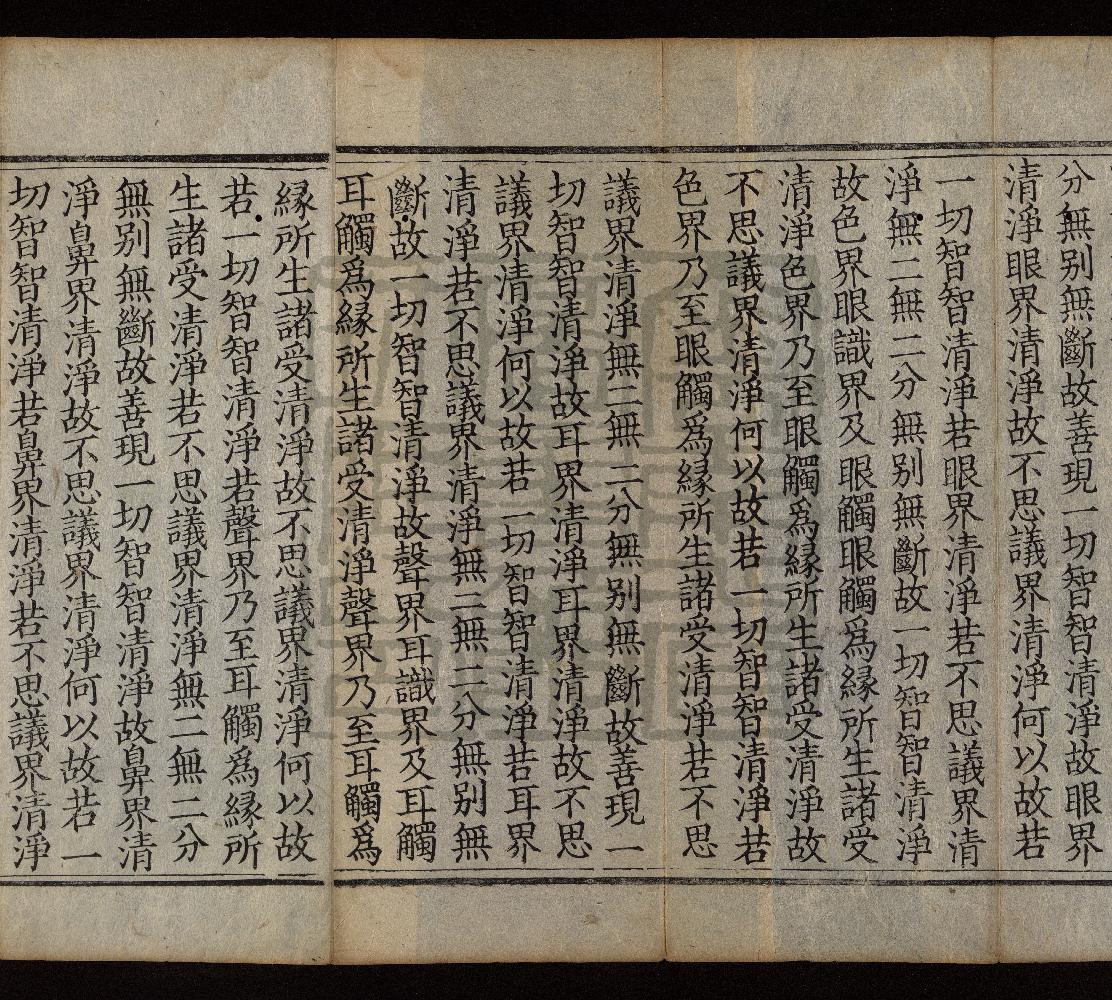 分無別無斷故善現一切智智清淨故眼界
清淨眼界清淨故不思議界清淨何以故若
一切智智清淨若眼界清淨若不思議界清
淨無二無二分無別無斷故一切智智清淨
故色界眼識界及眼觸眼觸爲縁所生諸受
清淨色界乃至眼觸爲縁所生諸受清淨故
不思議界清淨何以故若一切智智清淨若
色界乃至眼觸爲縁所生諸受清淨若不思
議界清淨無二無二分無別無斷故善現一
切智智清淨故耳界清淨耳界清淨故不思
議界清淨何以故若一切智智清淨若耳界
清淨若不思議界清淨無二無二分無別無
斷故一切智智清淨故聲界耳識界及耳觸
耳觸爲縁所生諸受清淨聲界乃至耳觸爲
縁所生諸受清淨故不思議界清淨何以故
若一切智智清淨若聲界乃至耳觸爲縁所
生諸受清淨若不思議界清淨無二無二分
無別無斷故善現一切智智清淨故鼻界清
淨鼻界清淨故不思議界清淨何以故若一
切智智清淨若鼻界清淨若不思議界清淨